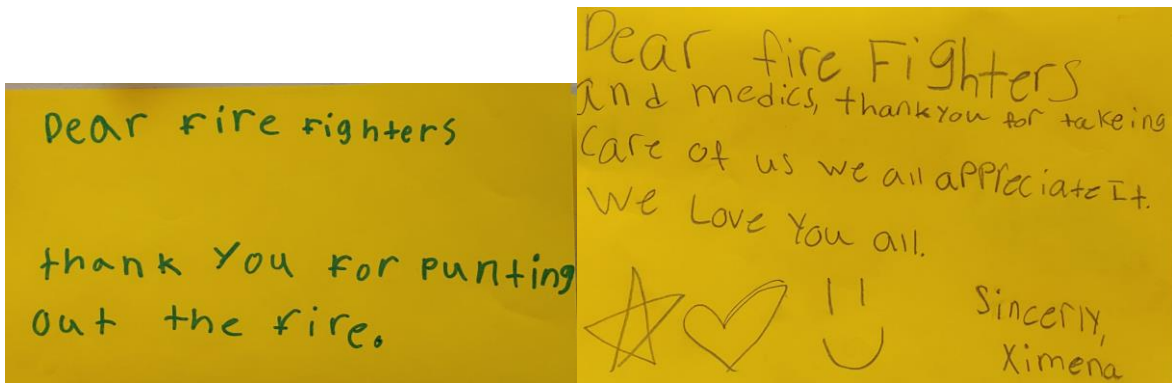 Dear fire fighters
thank You for punting
out the fire.
Dear fire Fighters
and medics, thank you for takeing
Care of us we all appreciate It.
We Love You all.
Sincerly,
Ximena